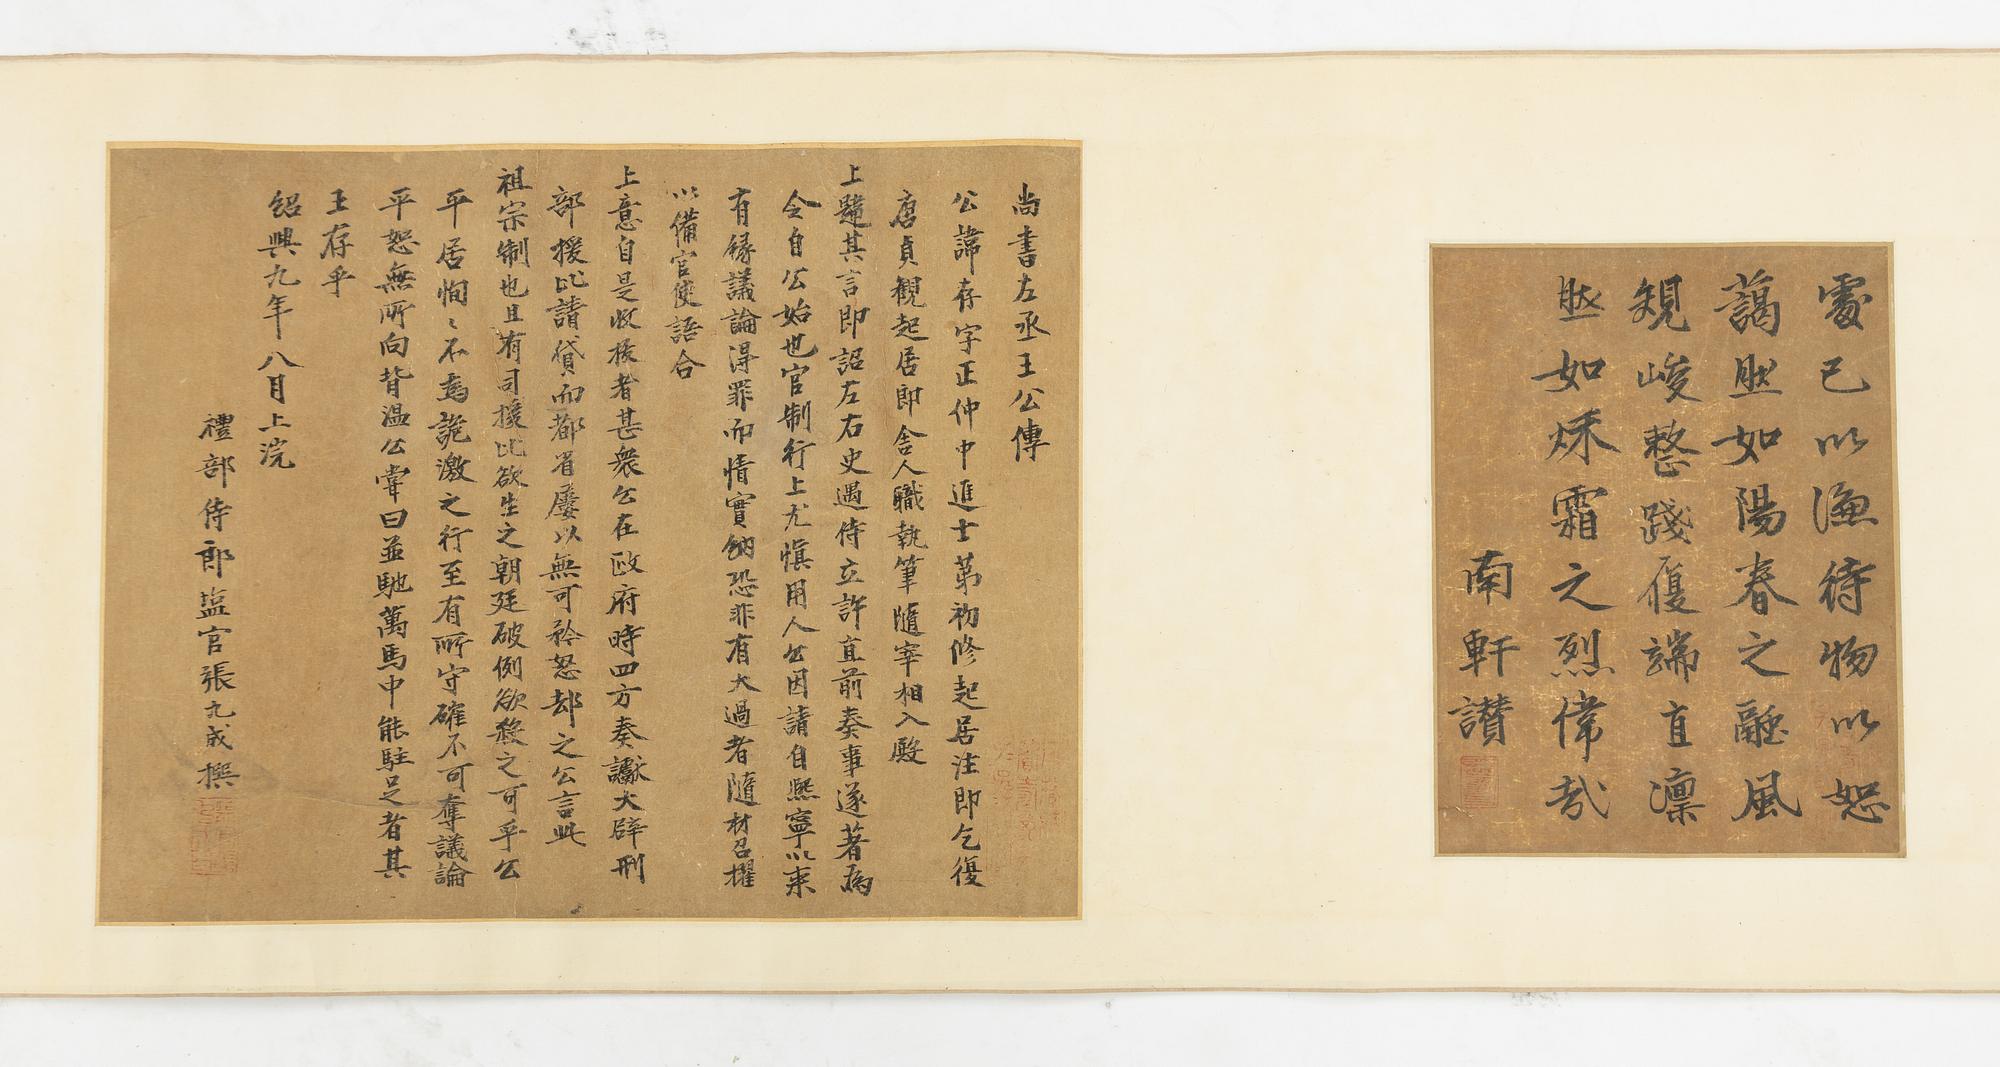 處己以漁待物以恕
藹然如陽春之融風
規峻整踐履端直凛
然如秋霜之烈偉哉
南軒讃
尚書左丞王公傳
公諱存字正仲中進士第初修起居注即乞復
唐貞觀起居郎舍人職執筆隨宰相入殿
上韙其言即詔左右史遇侍立許直前奏事遂著為
令自公始也官制行上尤慎用人公因請自熙寧以来
有緣議論得罪而情實納恐非有大過者隨材召擢
以備官使語合
上意自是收拔者甚衆公在政府時四方奏讞大辟刑
部援比請貸而都省屢以無可矜恕却之公言此
祖宗制也且有司援比欲生之朝廷破例欲殺之可乎公
平居恂〻不為詭激之行至有所守確不可奪議論
平恕無所向背溫公嘗曰並馳萬馬中能駐足者其
王存乎
紹興九年八月上浣
禮部侍郎盐官張九成撰